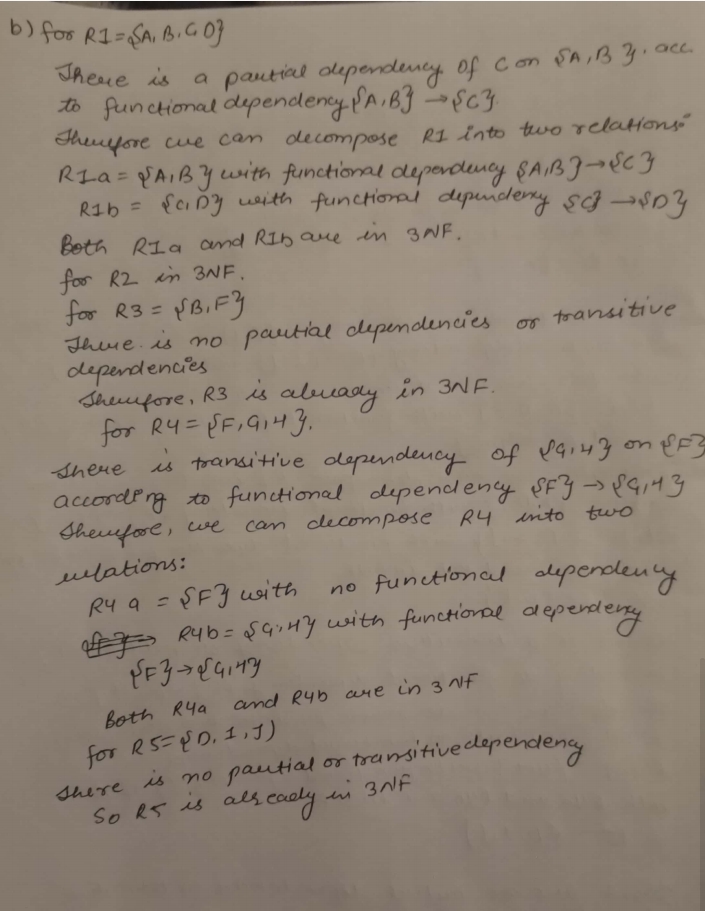 b) for R1 = {A, B, C, D}
There is a partial dependency of C on {A, B}. acc.
to functional dependency {A, B} → {C}.
Therefore we can decompose R1 into two relations:
R1a = {A, B} with functional dependency {A, B} → {C}
R1b = {C, D} with functional dependency {C} → {D}
Both R1a and R1b are in 3NF.
for R2 in 3NF.
for R3 = {B, F}
There is no partial dependencies or transitive
dependencies
Therefore, R3 is already in 3NF.
for R4 = {F, G, H}.
There is transitive dependency of {G, H} on {F}
according to functional dependency {F} → {G, H}
Therefore, we can decompose R4 into two
relations:
R4a = {F} with no functional dependency
R4b = {G, H} with functional dependency
{F} → {G, H}
Both R4a and R4b are in 3NF
for R5 = {D, I, J)
There is no partial or transitive dependency
So R5 is already in 3NF